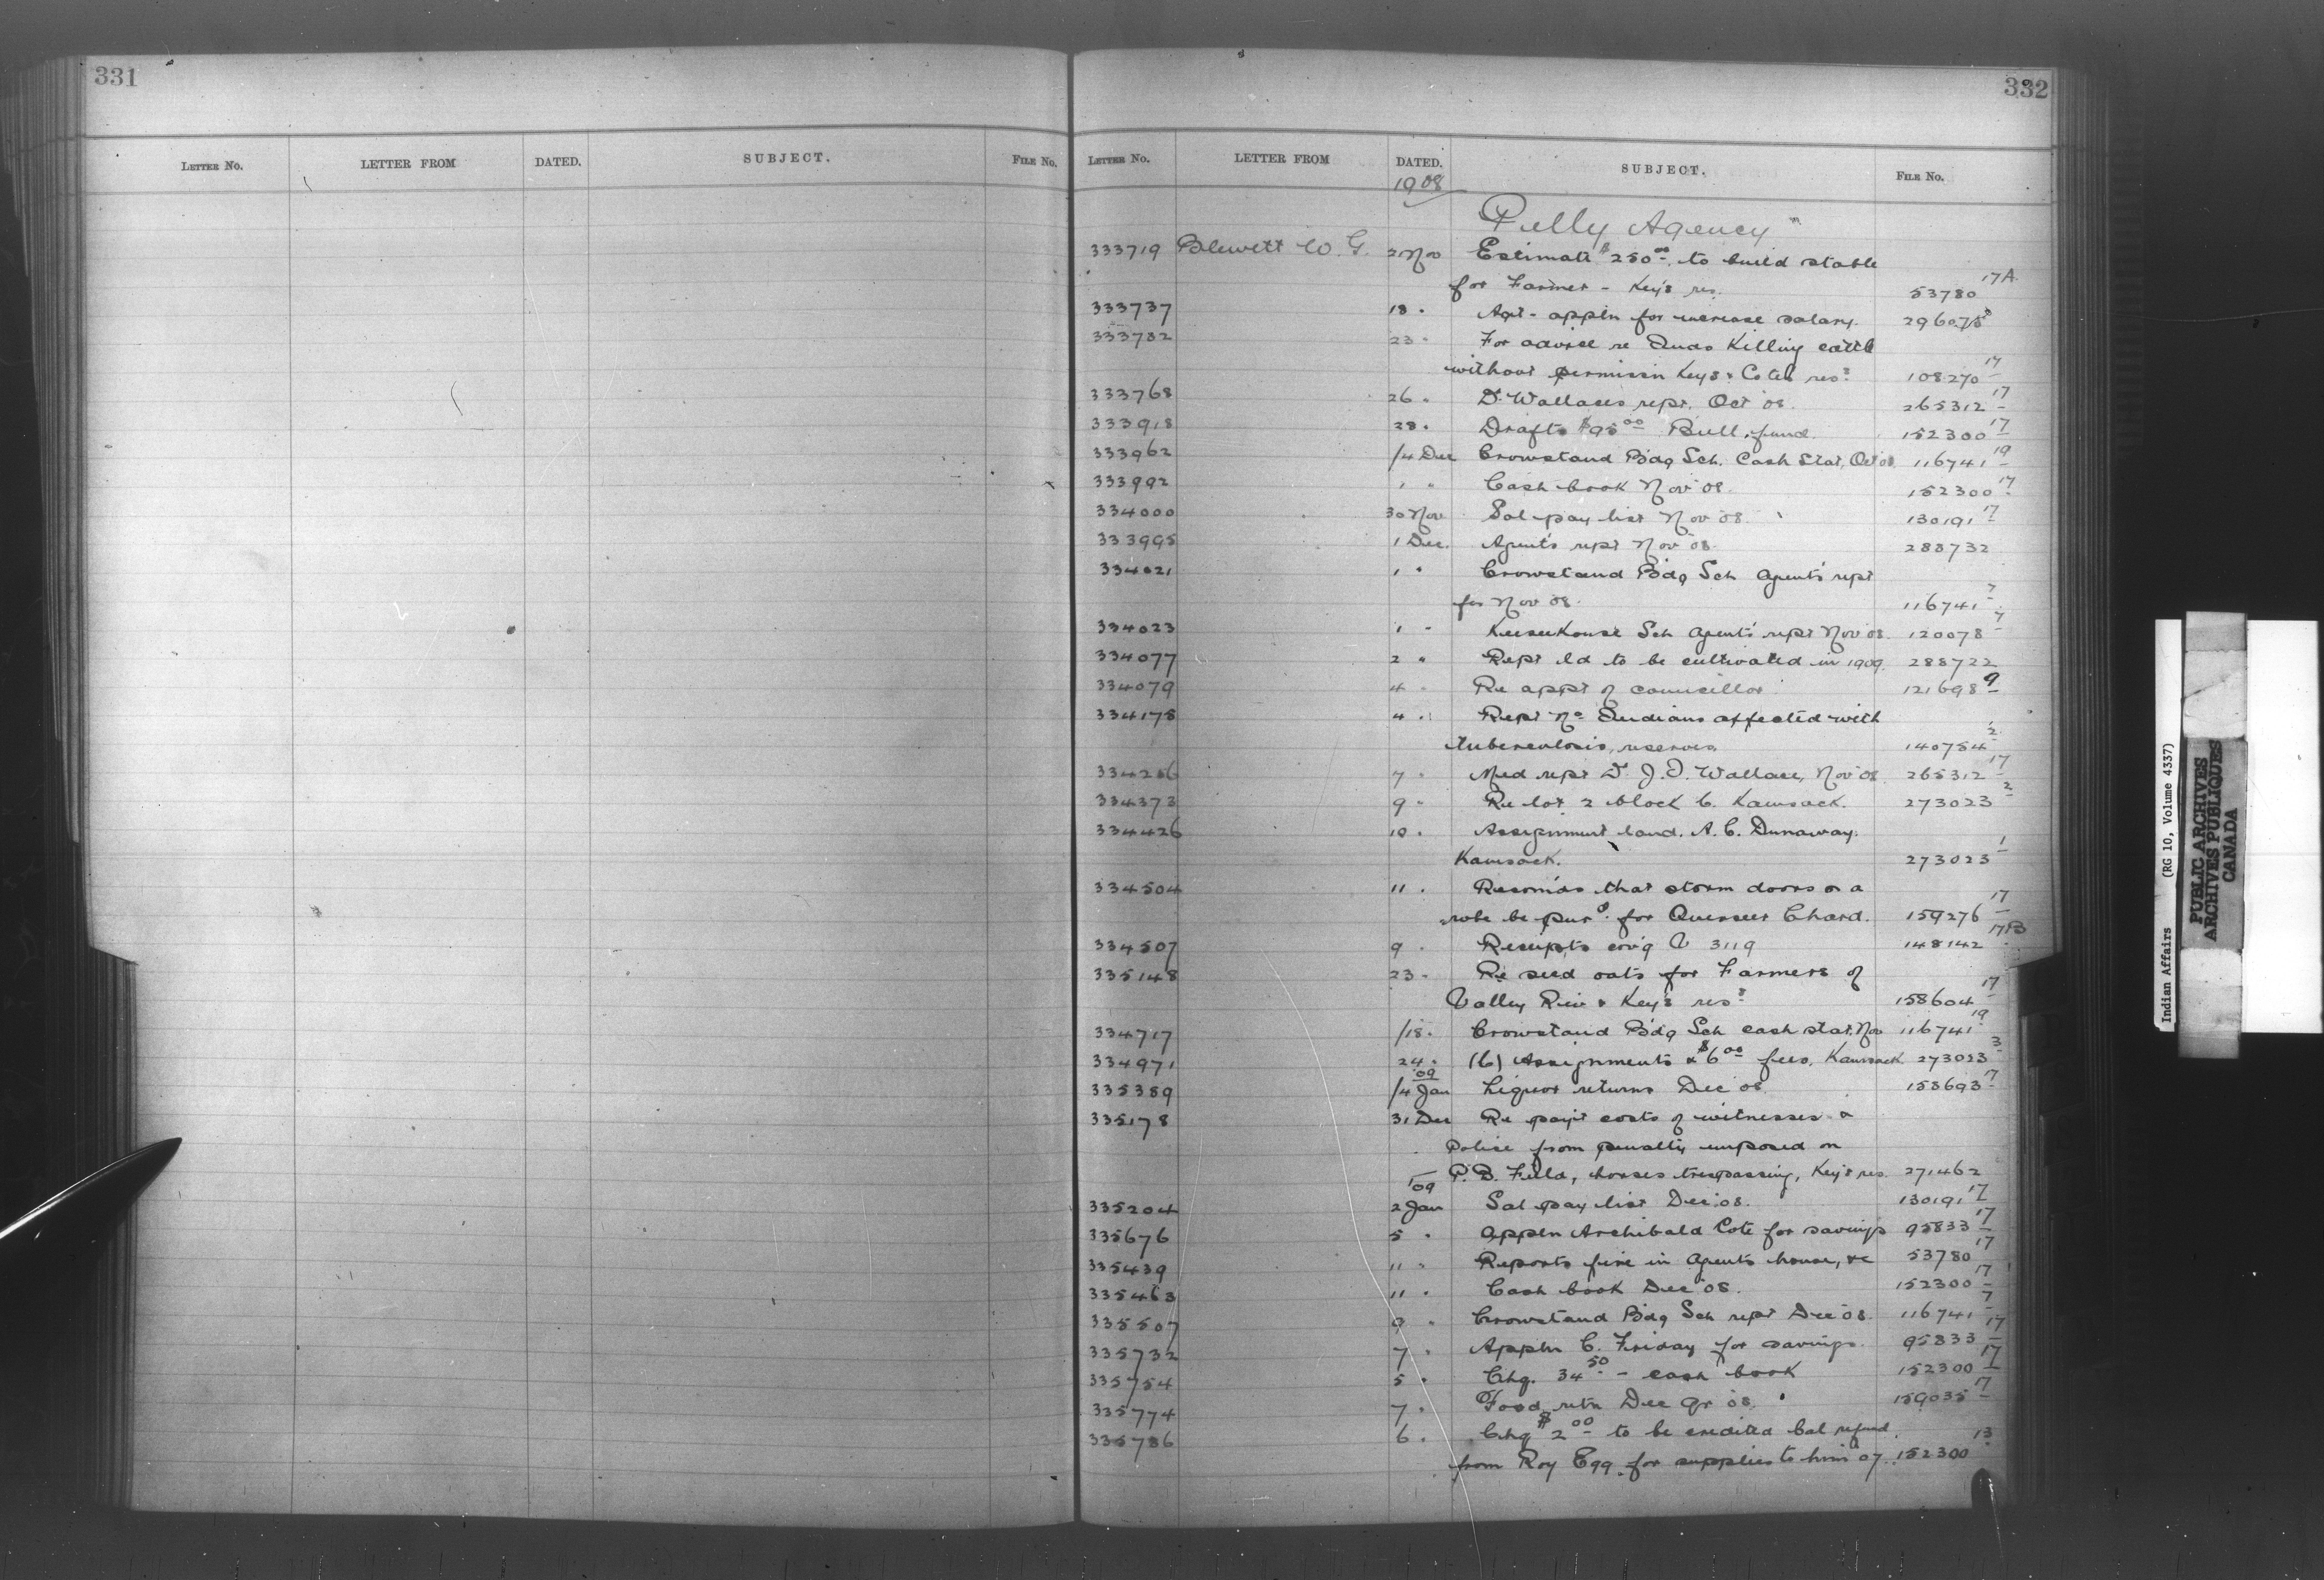 331
332
LETTER NO. LETTER FROM DATED. SUBJECT. FILE NO.
LETTER NO. LETTER FROM DATED. SUBJECT. FILE NO.
1908
Pelly Agency
333719 Blewett W. G. 2 Nov Estimate $250.00 to build stable
for Farmer - Key's res. 53780 17A
333737 18 " Agt - appln for increase salary. 296075
333732 23 " For advice re Inds Killing cattle
without permissn Keys & Cotes res. 108270 17
333768 26 " Dr Wallaces rept. Oct 08. 265312 17
333918 28 " Drafts $95.00 Bull fund. 152300 17
333962 /4 Dec Crowstand Bdg Sch. Cash Stat, Oct 08 116741 19
333992 1 " Cash book Nov 08. 152300 17
334000 30 Nov Sal pay list Nov 08. 130191 17
333995 1 Dec. Agent's rept Nov 08. 288732
334021 1 " Crowstand Bdg Sch Agent's rept
for Nov 08. 116741 7
334023 1 " Keeseekouse Sch Agent's rept Nov 08. 120078 7
334077 2 " Rept ld to be cultivated in 1909. 288722
334079 4 " Re appt of councillor 121698 9
334178 4 " Rept No Indians affected with
tuberculosis, reserves. 140754 2
334286 7 " Med rept Dr J. I. Wallace, Nov 08. 265312 17
334373 9 " Re lot 2 block 6. Kamsack. 273023 2
334426 10 " Assignment land. A. C. Dunaway.
Kamsack. 273023 1
334504 11 " Recomds that storm doors & a
robe be purd. for Overseer Chard. 159276 17
334507 9 " Receipts cov'g V 3119 148142 17B
335148 23 " Re seed oats for Farmers of
Valley Riv & Key's res. 158604 17
334717 /18 " Crowstand Bdg Sch cash stat. Nov 116741 19
334971 24 " (6) Assignments & $6.00 fees, Kamsack 273023 3
09
335389 /4 Jan Liquor returns Dec 08. 158693 17
335178 31 Dec Re pay't costs of witnesses &
Police from penalty imposed on
P. B. Field, horses trespassing, Key's res. 271462
/09
335204 2 Jan Sal pay list Dec. 08. 130191 17
335676 5 " Appln Archibald Cote for savings 95833 17
335439 11 " Reports fire in Agents house, &c 53780 17
335463 11 " Cash book Dec 08. 152300 17
335507 9 " Crowstand Bdg Sch rept Dec 08. 116741 7
335732 7 " Appln C. Friday for savings. 95833 17
335754 5 " Chq. 34.50 - cash book 152300 17
335774 7 " Food retn Dec qr 08. 159035 17
335786 6 " Chq $2.00 to be credited bal refund
from Roy Egg for supplies to him 07. 152300 13
Indian Affairs (RG 10, Volume 4337)
PUBLIC ARCHIVES
ARCHIVES PUBLIQUES
CANADA